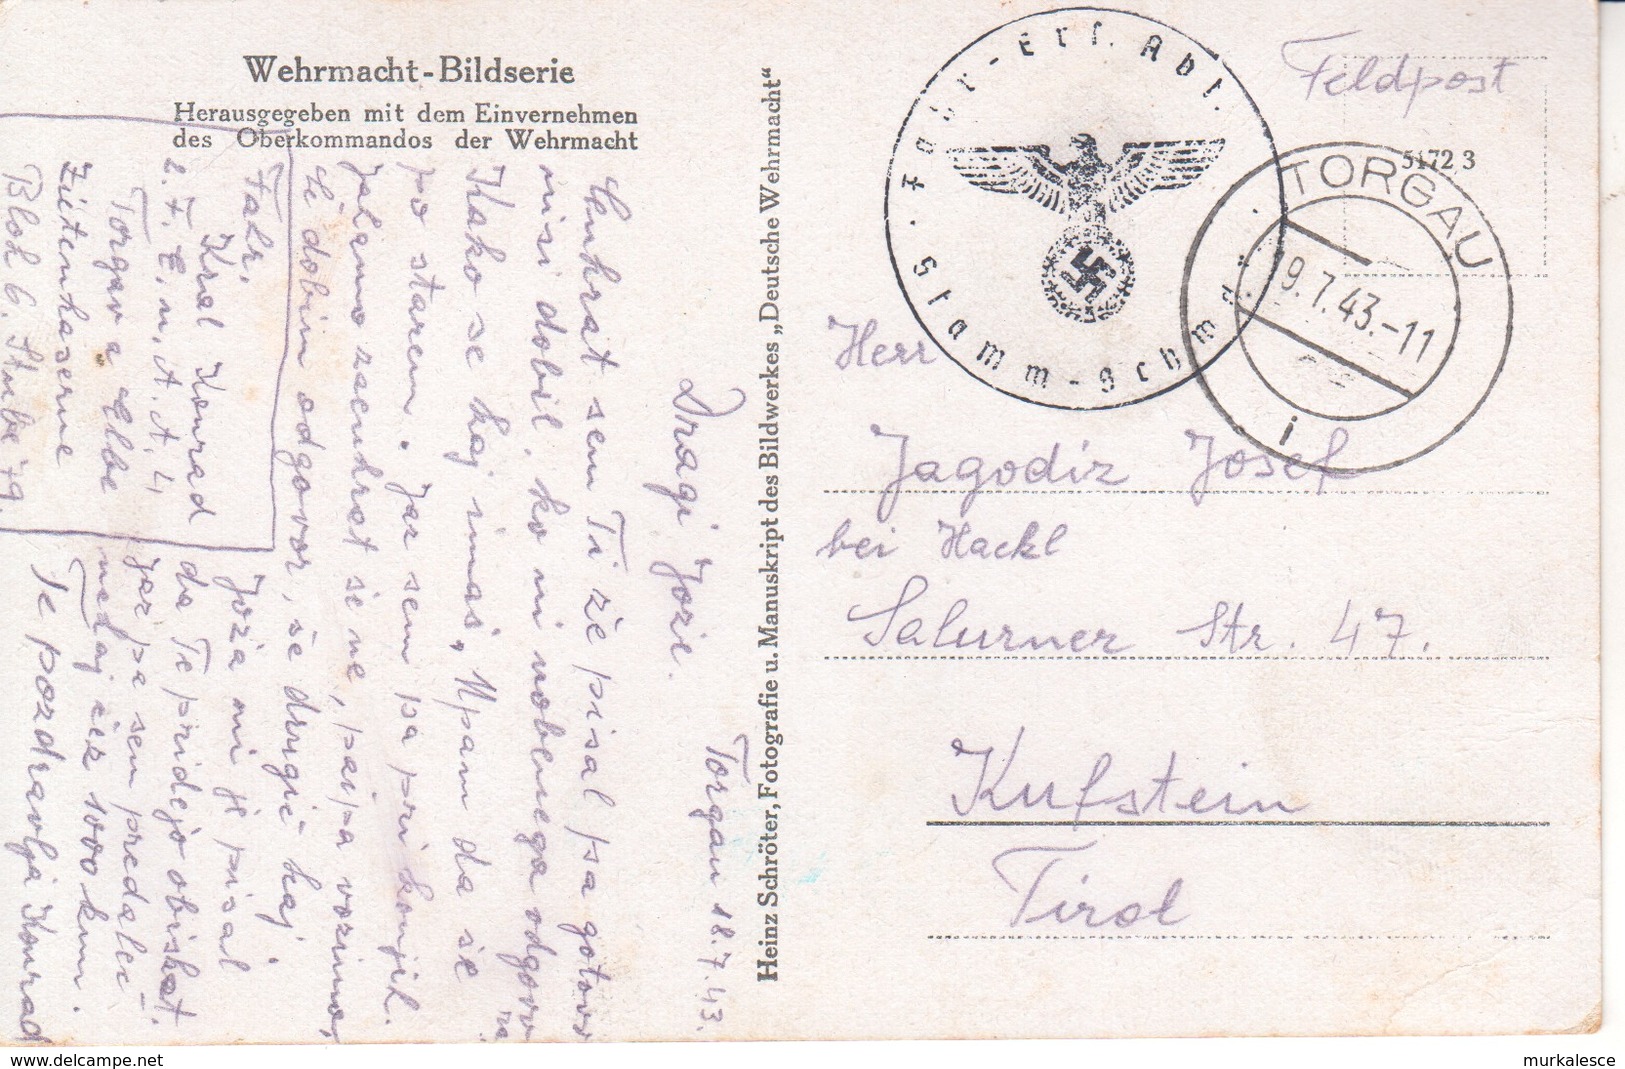 Wehrmacht-Bildserie
Herausgegeben mit dem Einvernehmen
des Oberkommandos der Wehrmacht
Torgau 18.7.43.
Dragi Jože.
Enkrat sem Ti že pisal pa gotovo
nisi dobil, ko ni nobenega odgovora
Kako se kaj imaš, Upam da še
po starem. Jaz sem pa pri konjih.
Jahamo zaenkrat še ne, pač pa vozimo,
Če dobim odgovor, še drugič kaj
Joža mi je pisal
da Te pridejo obiskat.
Jaz pa sem predaleč
nedaj čez 1000 km.
Te pozdravlja Konrad
Fahr,
Kral Konrad
2. F. E. u. A. A. 4
Torgau a Elbe
Zietenkaserne
Bloh 6. Stube 79.
Heinz Schröter, Fotografie u. Manuskript des Bildwerkes „Deutsche Wehrmacht“
Fahr-Ers. Abt.
Stamm-Schw
Feldpost
5172 3
TORGAU
19.7.43.-11
i
Herr
Jagodiz Josef
bei Hackl
Salurner Str. 47.
Kufstein
Tirol
www.delcampe.net
murkalesce